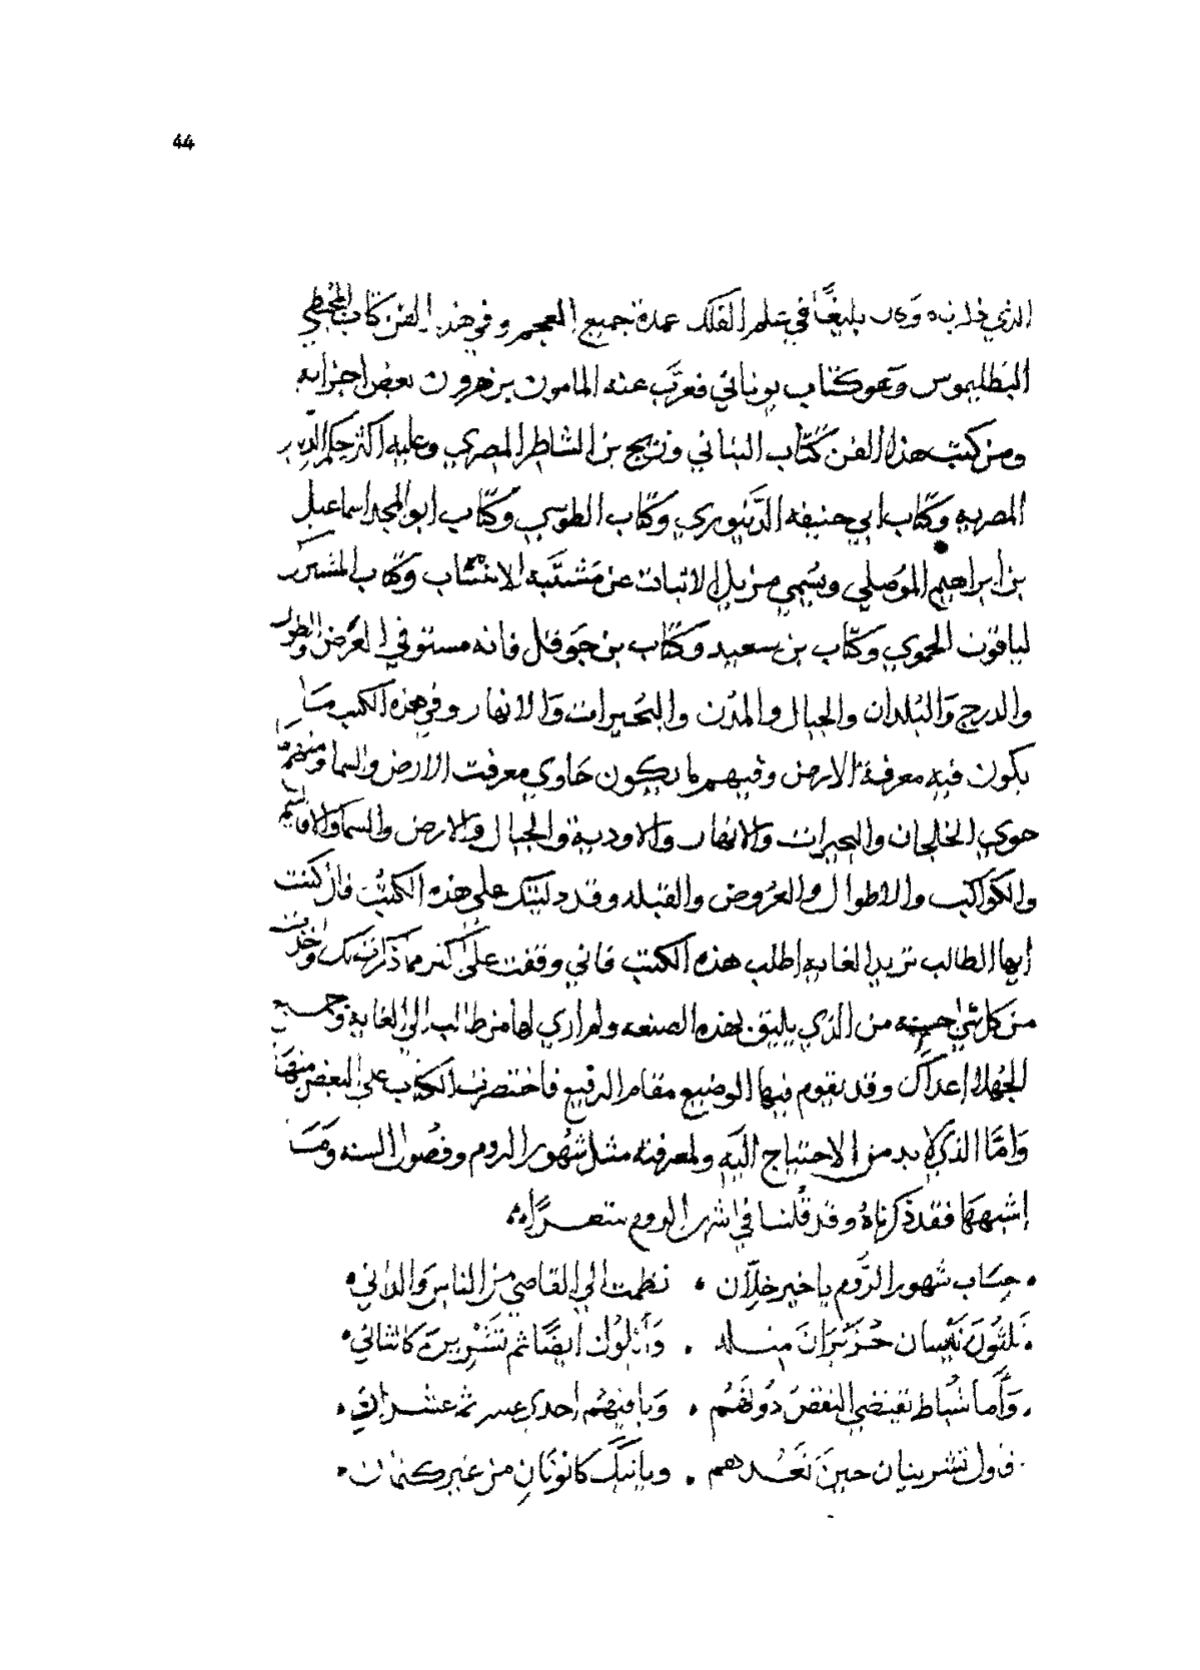 44
الذي بليغًا في علم الفلك عمدة جميع العجم وفي هذا الفن كتاب المجسطي
البطليموس وهو كتاب يوناني فعرّب عنه المامون بن هرون بعض اجزايه
ومن كتب هذا الفن كتاب البتاني وزيج بن الشاطر المصري وعليه اكثر حكم الديار
المصريه وكتاب ابي حنيفه الدّينوري وكتاب الطوسي وكتاب ابو المجد اسماعيل
بن ابراهيم الموُصلي ويسُمي مزيل الاتبات عن مَشتَبه الانتساب وكتاب المشترك
لياقوت الحموي وكتاب بن سعيد وكتاب بن حَوقل فانه مستوفي العَرض والطول
والدرج وَالبُلدان والجبال والمدُن والبُحيرات وَالانهار وفي هذه الكتب مَا
يكون فيه معرفة الارض وفيهم ما يكون حَاوي معرفت الارض والسما ومنهم مَا
حوي الخلجان والبحيرات والانهار والاودية والجبال والارض والسما والاقاليم
والكوَاكب والاطوال والعرُوض والقبله وقد دليتك علي هذه الكتُب فان كنت
ايها الطالب تريد الغايه اطلب هذه الكتب فاني وقفت علي اكثر مما ذكرته لك واخذت
من كل شي احسنه من الذي يليق بهذه الصنعه ولم اري لها من طالب الي الغاية وجميع
الجُهلا اعداك وقد يقوم فيها الوضيع مقام الرفيع فاختصرت الكتاب علي البعض منهَا
وَامّا الذي لا بد من الاحتياج اليَه ولمعرفته مثل شهُور الروم وفصُول السنه وَمَا
اشبههَا فقد ذكرناهُ وقد قُلنا في اشهر الروم شعـرًا
حِسَاب شهور الرّوم يا خير خلّان • نظمت الي القاصي من الناس وَالداني
ثلثُونَ نَيسان حُزيَرانَ مثله • وَأيلُول ايضًا ثم تشَرين كالثاني
وَأما شُباط تقيتضي النقصُ دُونهُم • وَباقيهُم احدي عشر ثم عشران
فاول تشرينان حينَ تعُدهم • وياتيكَ كانونَانِ من غير كتمان